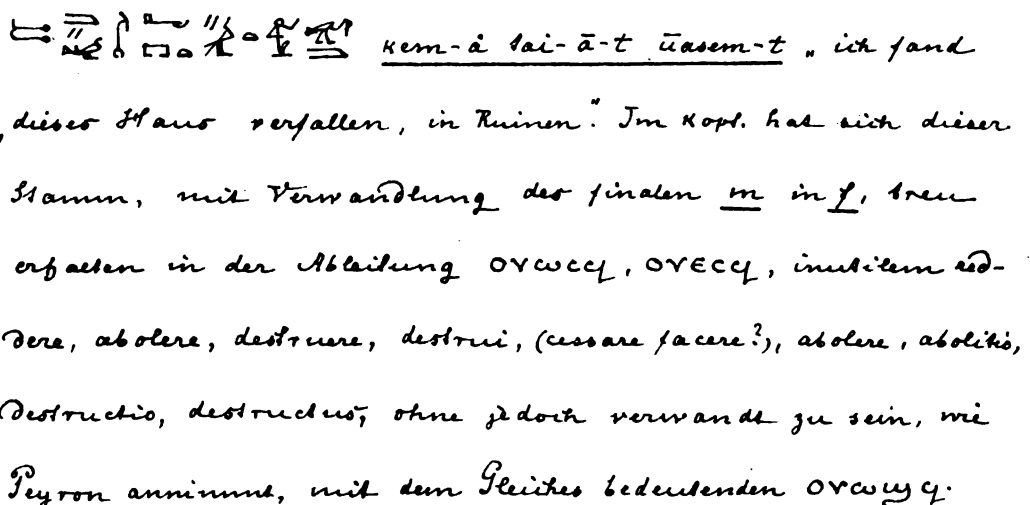 kem-à sai-ā-t ūasem-t „ich fand
dieses Haus verfallen, in Ruinen“. Im Kopt. hat sich dieser
Stamm, mit Verwandlung des finalen m in f, treu
erhalten in der Ableitung ⲟⲩⲱⲥϥ, ⲟⲩⲉⲥϥ, inutilem red-
dere, abolere, destruere, destrui, (cessare facere?), abolere, abolitio,
destructio, destructus, ohne jedoch verwandt zu sein, wie
Peyron annimmt, mit dem Gleiches bedeutenden ⲟⲩⲱϣϥ.